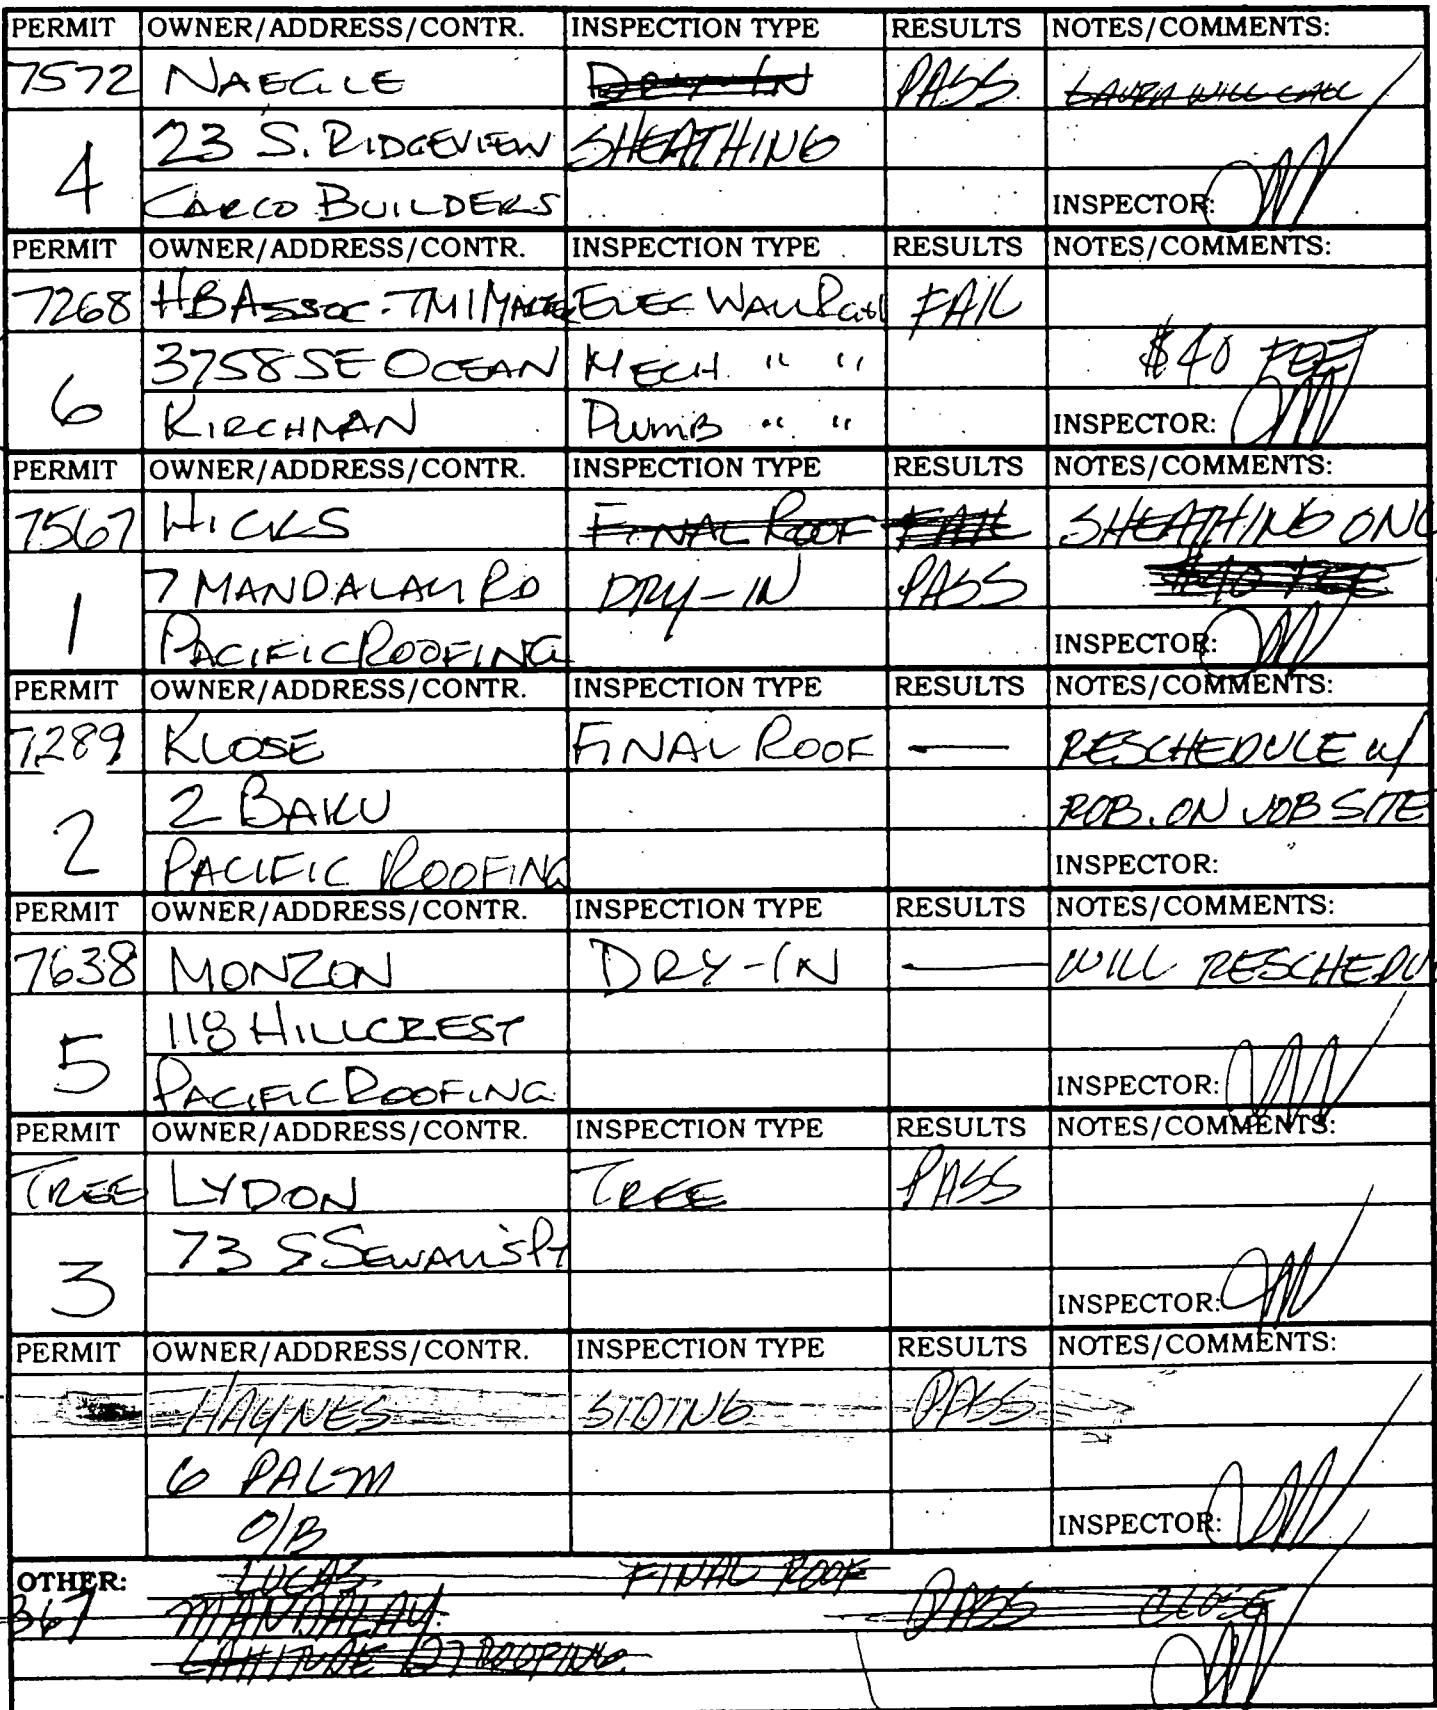 PERMIT OWNER/ADDRESS/CONTR. INSPECTION TYPE RESULTS NOTES/COMMENTS:
7572 NAEGLE DRY-IN PASS LAURA WILL CALL
4 23 S. RIDGEVIEW SHEATHING
CARCO BUILDERS INSPECTOR:
PERMIT OWNER/ADDRESS/CONTR. INSPECTION TYPE RESULTS NOTES/COMMENTS:
7268 HB ASSOC - TM1 ELEC WALL FAIL
6 3758 SE OCEAN MECH " " $40 FEE
KIRCHMAN PLUMB " " INSPECTOR:
PERMIT OWNER/ADDRESS/CONTR. INSPECTION TYPE RESULTS NOTES/COMMENTS:
7567 HICKS FINAL ROOF FAIL SHEATHING ONL
1 7 MANDALAY RD DRY-IN PASS $40 FEE
PACIFIC ROOFING INSPECTOR:
PERMIT OWNER/ADDRESS/CONTR. INSPECTION TYPE RESULTS NOTES/COMMENTS:
7289 KLOSE FINAL ROOF — RESCHEDULE W/
2 2 BAKU ROB. ON JOB SITE
PACIFIC ROOFING INSPECTOR:
PERMIT OWNER/ADDRESS/CONTR. INSPECTION TYPE RESULTS NOTES/COMMENTS:
7638 MONZON DRY-IN — WILL RESCHEDU
5 118 HILLCREST
PACIFIC ROOFING INSPECTOR:
PERMIT OWNER/ADDRESS/CONTR. INSPECTION TYPE RESULTS NOTES/COMMENTS:
TREE LYDON TREE PASS
3 73 S SEWALL'S PT
INSPECTOR:
PERMIT OWNER/ADDRESS/CONTR. INSPECTION TYPE RESULTS NOTES/COMMENTS:
HAYNES SIDING PASS
6 PALM
O/B INSPECTOR:
OTHER: LUCAS FINAL ROOF
367 MANDALAY PASS CLOSE
LATITUDE 27 ROOFING